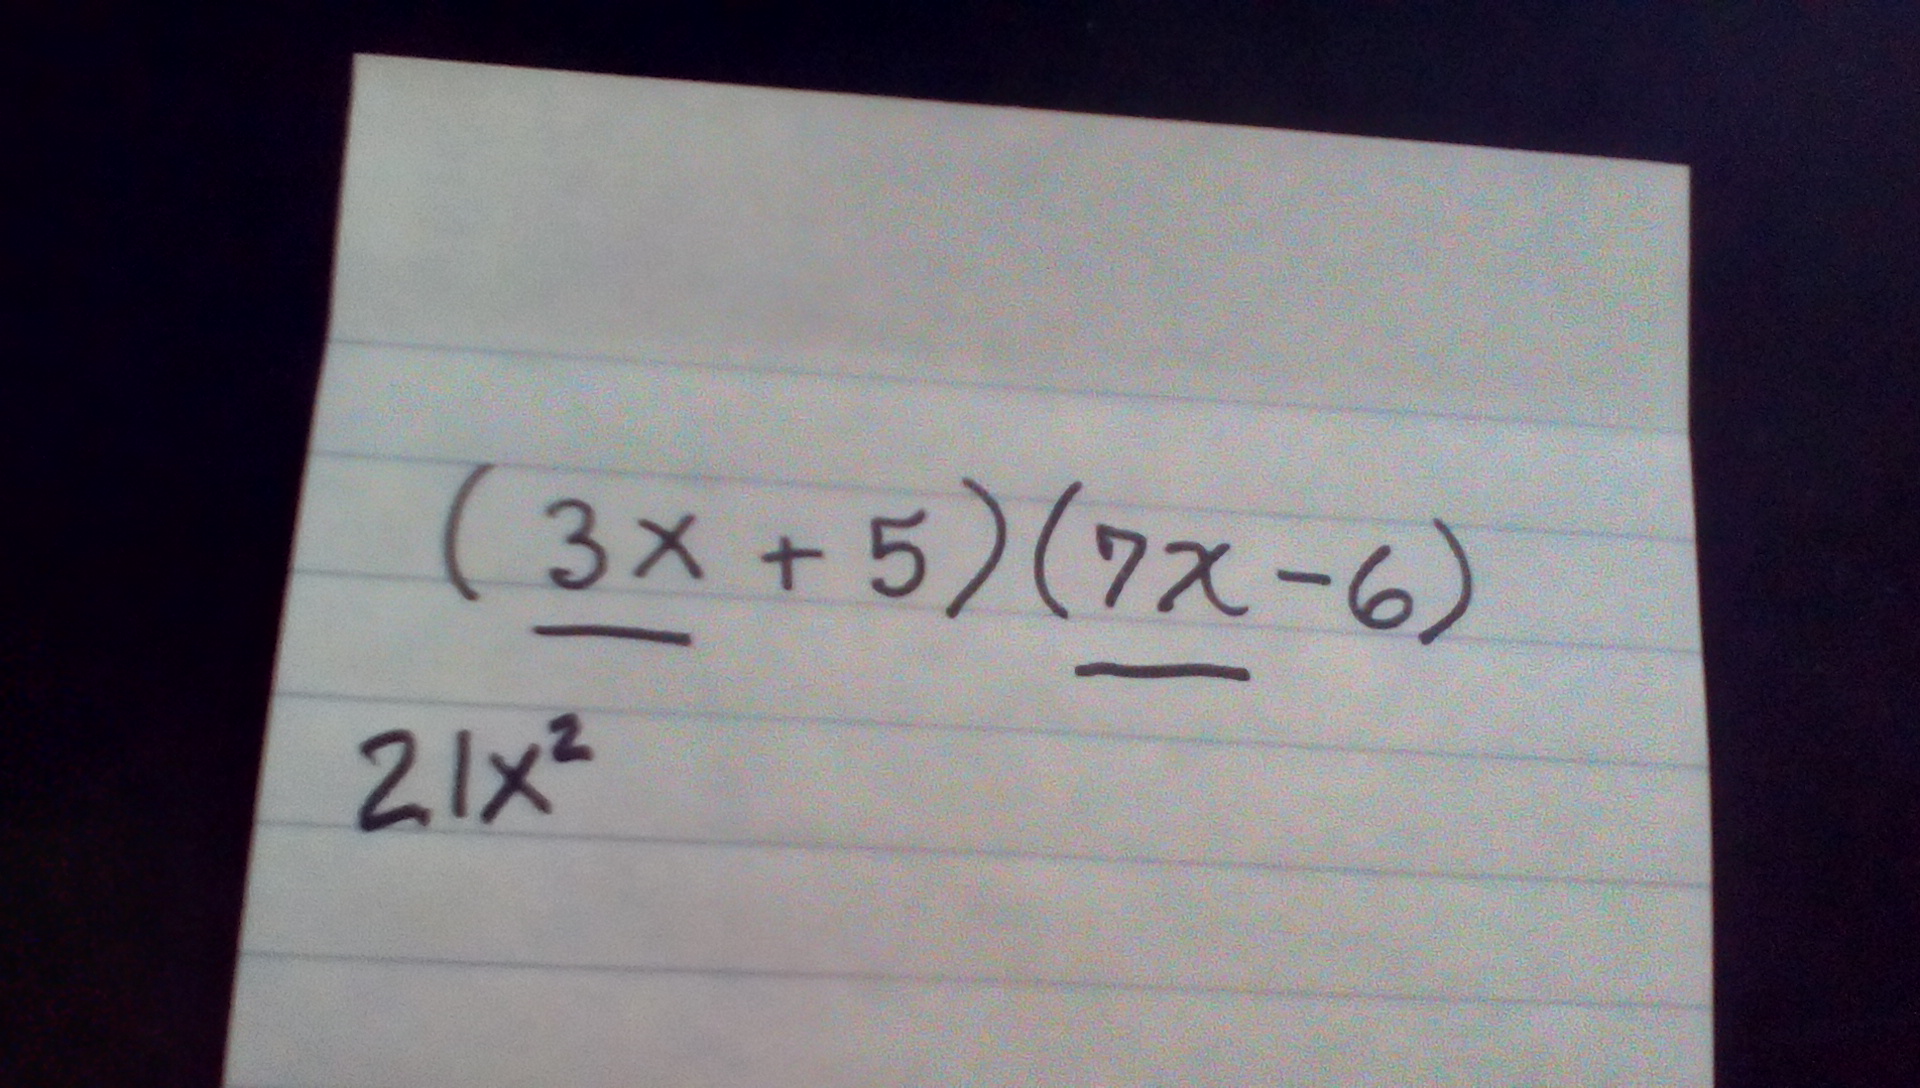 (3x + 5)(7x - 6)
21x²